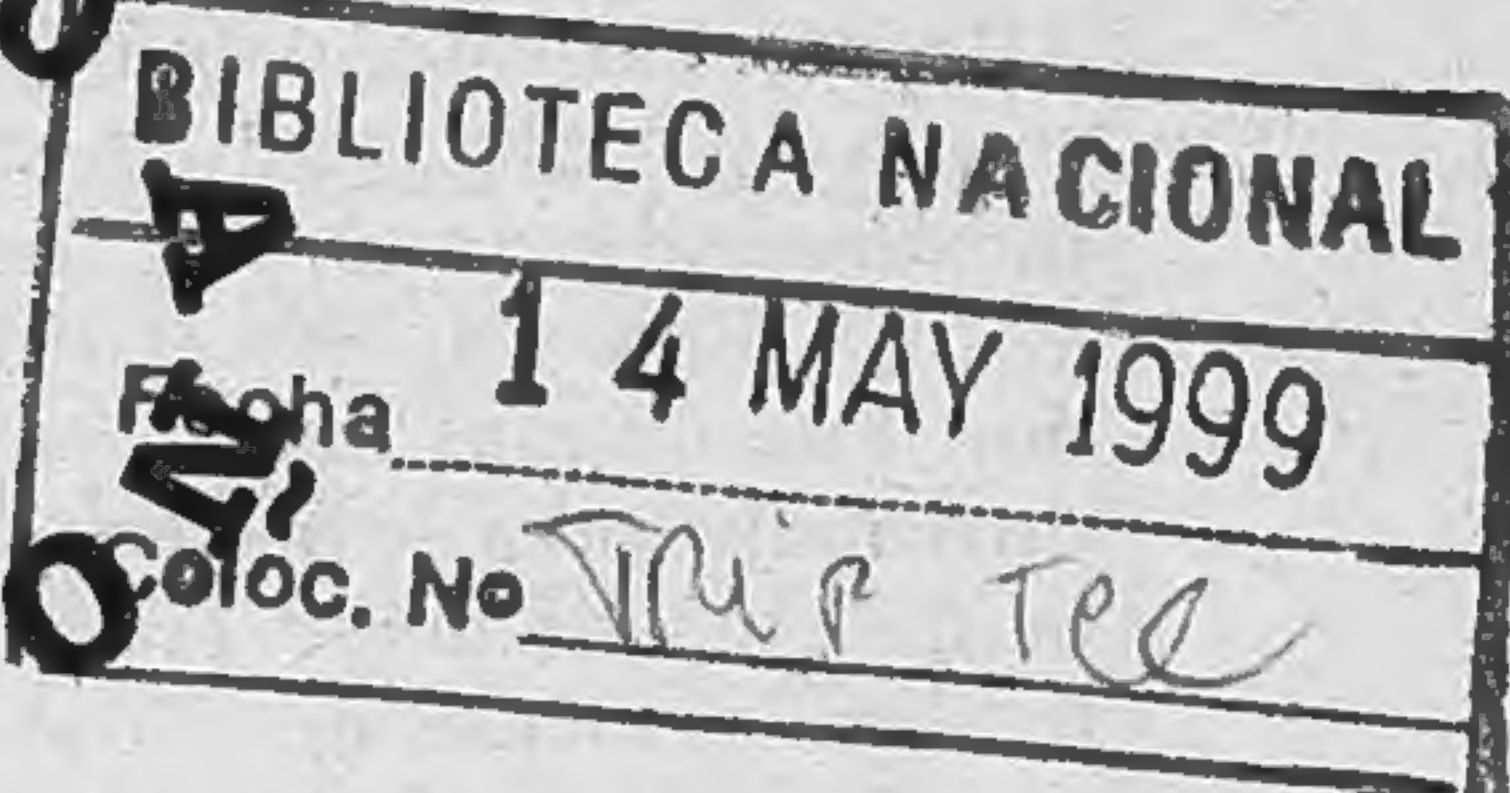 BIBLIOTECA NACIONAL
Fecha 14 MAY 1999
Coloc. No